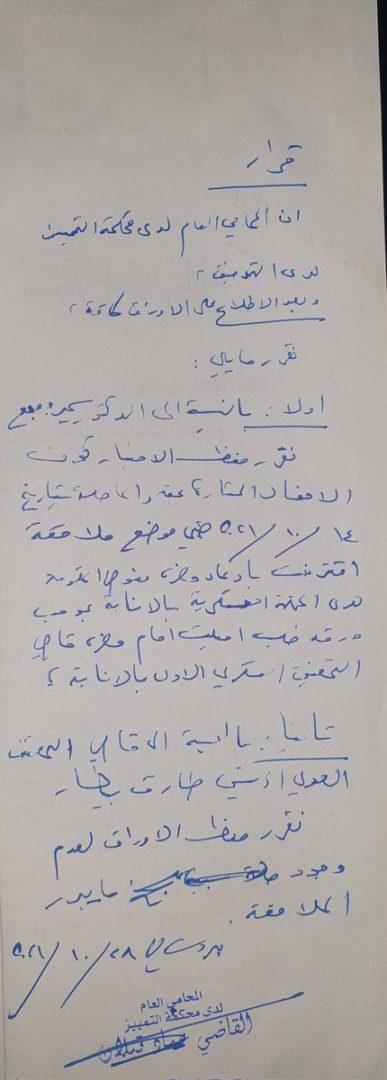 قرار
ان المحامي العام لدى محكمة التمييز
لدى التدقيق،
وبعد الاطلاع على الاوراق كافة،
نقرر ما يلي :
اولا : بالنسبة الى الدكتور سمير جعجع
نقرر حفظ الاخبار كون
الافعال المشار اليها والحاصلة بتاريخ
١٤/١٠/٢٠٢١ هي موضع ملاحقة
اقترنت بادعاء مفوض الحكومة
لدى المحكمة العسكرية بالانابة بموجب
ورقة طلب احيلت امام قاضي
التحقيق العسكري الاول بالانابة ؛
ثانيا : بالنسبة الى قاضي التحقيق
العدلي الرئيس طارق بيطار
نقرر حفظ الاوراق لعدم
وجود ما يبرر
الملاحقة .
بيروت في ٢٨/١٠/٢٠٢١
المحامي العام
لدى محكمة التمييز
القاضي عماد قبلان